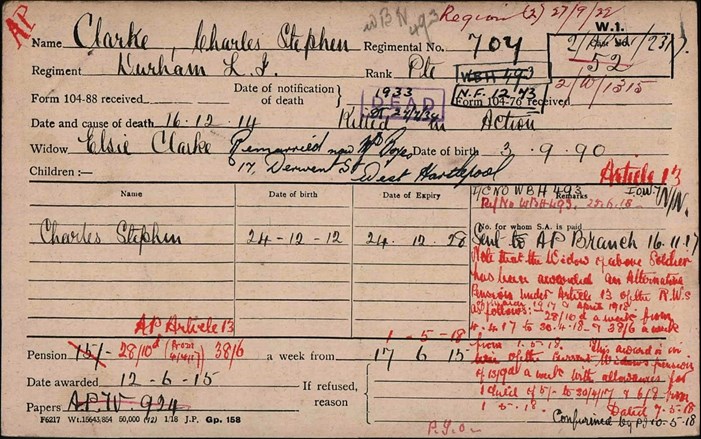 AP
WBN 493
Region (2) 27/9/22
W.1.
Name Clarke, Charles Stephen Regimental No. 704
2/ /23/7.
52
2/W/1315
Regiment Durham L.I. Rank Pte
WBH 493
N.F. 12/43
Form 104-88 received Date of notification of death 1933 Form 104-76 received
DEAD
Date and cause of death 16-12-14 Killed in Action
Widow Elsie Clarke Remarried now Mrs Date of birth 3.9.90
17, Derwent St West Hartlepool
Children:—
Article 13
Name Date of birth Date of Expiry Remarks
P/C NO WBH 493 N/N.
Ref No WBH 493. 28-6-18
No. for whom S.A. is paid
Charles Stephen 24-12-12 24.12.28
Sent to AP Branch 16.11.17
Note that the Widow of above Soldier
has been awarded an Alternative
Pension under Article 13 of the R.W.S
as follows:- 28/10d a week from
4.4.17 to 30.4.18 & 38/6 a week
from 1.5.18. This award is in
lieu of the current Widow's pension
of 13/9d a week with allowances for
1 child of 5/- to 30/4/17 & 6/8 from
1.5.18. Dated 7.5.18
Confirmed by 10-5-18
AP Article 13
1-5-18
Pension 15/- 28/10d (from 4/4/17) 38/6 a week from 17 6 15
Date awarded 12-6-15 If refused, reason
Papers A.P.W. 924
F6217 Wt.15643,864 50,000 (72) 1/18 J.P. Gp. 158
P.T.O.